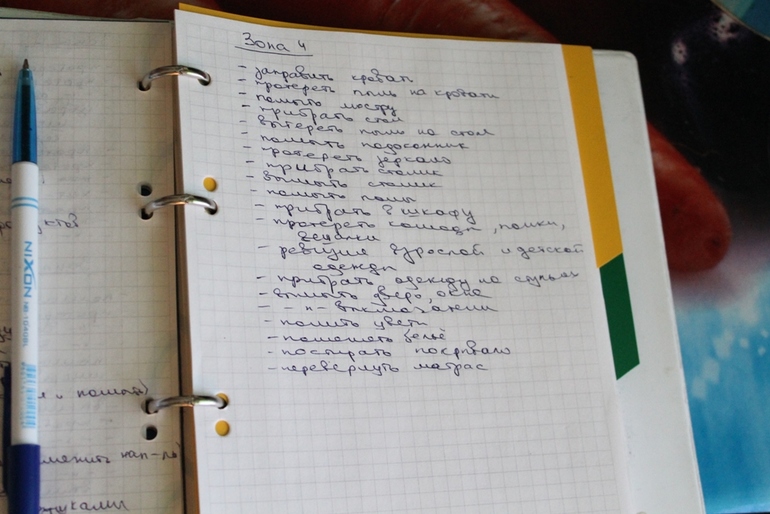 Зона 4
- заправить кровать
- протереть пыль на кровати
- помыть люстру
- прибрать стол
- вытереть пыль на стол
- помыть подоконник
- протереть зеркало
- прибрать столик
- вымыть столик
- помыть полы
- прибрать в шкафу
- протереть комоды, полки,
вешалки
- ревизия взрослой и детской
одежды
- прибрать одежду на стульях
- вымыть дверь, окна
- -"- выключатели
- полить цветы
- поменять бельё
- постирать покрывало
- перевернуть матрас
NIXON
и помыть)
менить нап-ль)